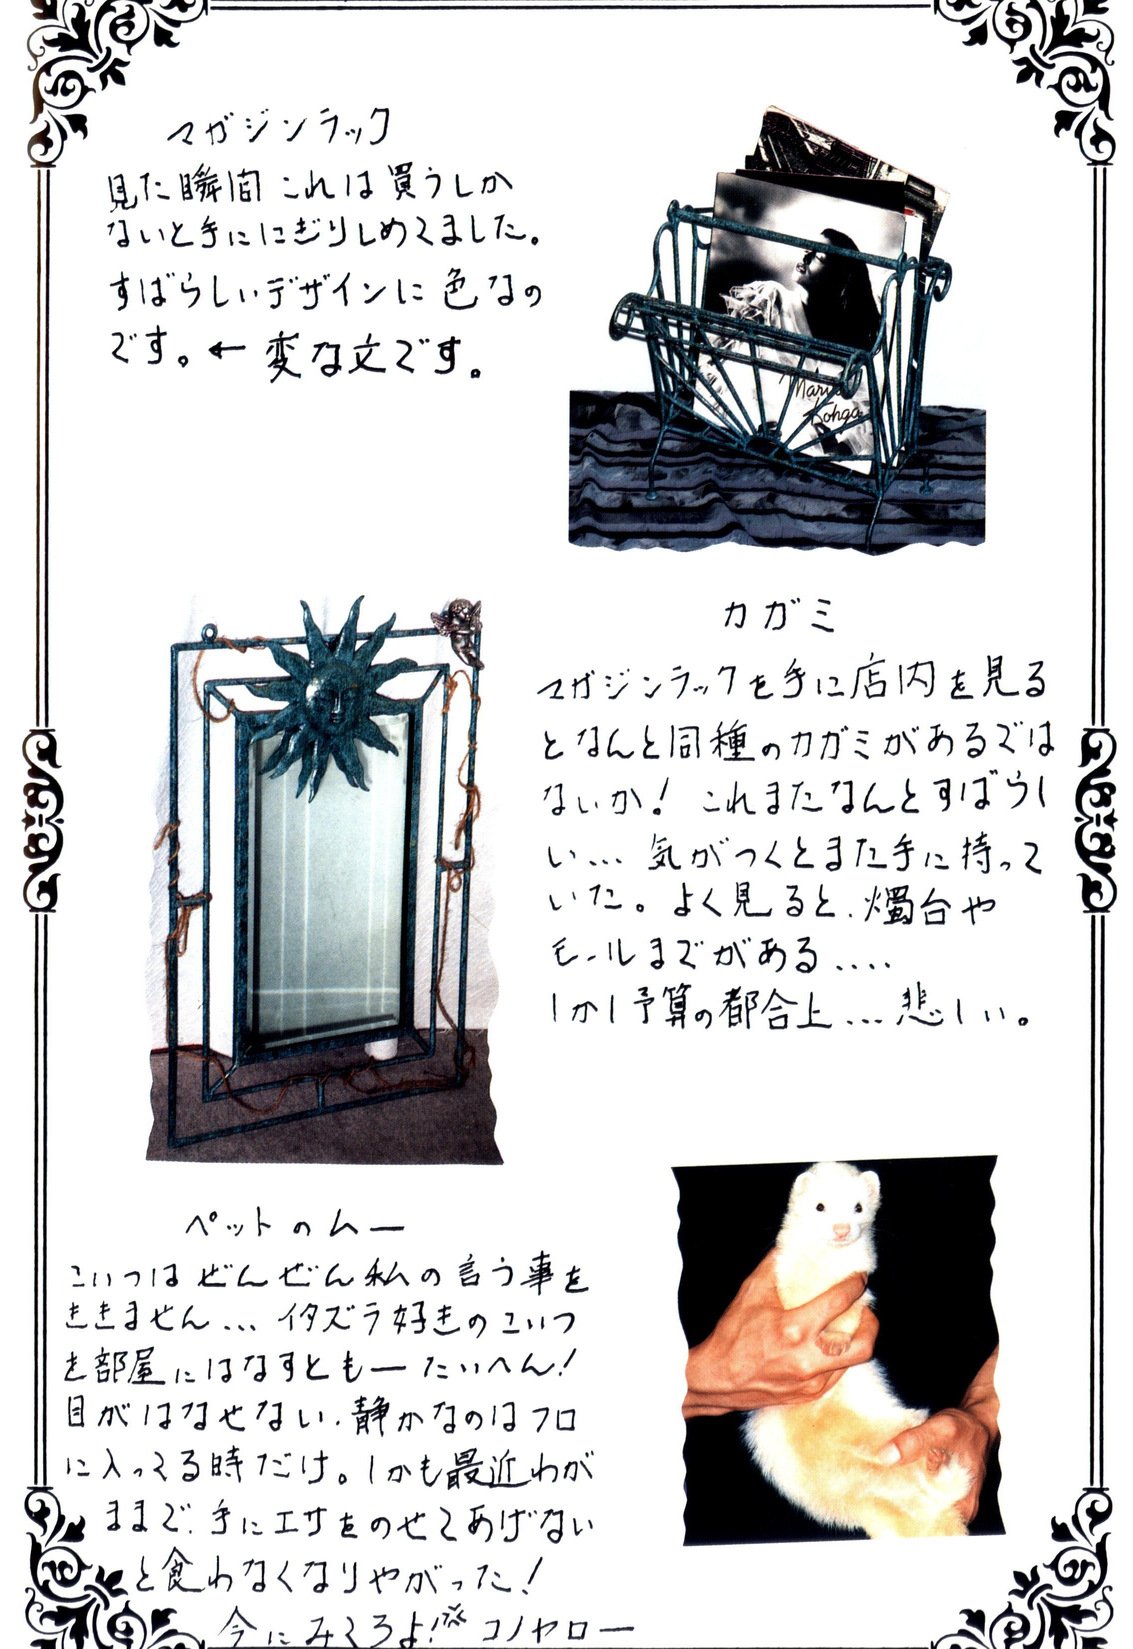 マガジンラック
見た瞬間これは買うしか
ないと手ににぎりしめてました。
すばらしいデザインに色なの
です。← 変な文です。
Mari
Kohga
カガミ
マガジンラックを手に店内を見る
となんと同種のカガミがあるでは
ないか! これまたなんとすばらし
い… 気がつくとまた手に持って
いた。よく見ると、燭台や
モールまでがある‥‥
しかし予算の都合上…悲しい。
ペットのムー
こいつはぜんぜん私の言う事を
ききません… イタズラ好きのこいつ
を部屋にはなすともーたいへん!
目がはなせない、静かなのはフロ
に入ってる時だけ。しかも最近わが
ままで、手にエサをのせてあげない
と食わなくなりやがった!
今にみてろよ! コノヤロー